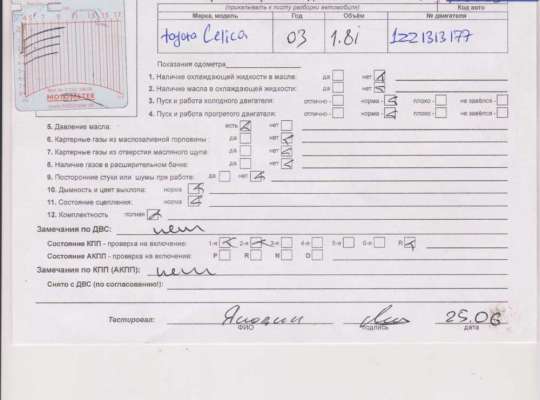 (прикалывать к посту разборки автомобиля)
Марка, модель Год Объём № двигателя Код авто
toyota Celica 03 1.8i 1ZZ1313177
Показания одометра
1. Наличие охлаждающей жидкости в масле: да нет
2. Наличие масла в охлаждающей жидкости: да нет
3. Пуск и работа холодного двигателя: отлично норма плохо не завёлся
4. Пуск и работа прогретого двигателя: отлично норма плохо не завёлся
5. Давление масла: есть нет
6. Картерные газы из маслозаливной горловины: да нет
7. Картерные газы из отверстия масляного щупа: да нет
8. Наличие газов в расширительном бачке: да нет
9. Посторонние стуки или шумы при работе: да нет
10. Дымность и цвет выхлопа: норма
11. Состояние сцепления: норма
12. Комплектность полная
Замечания по ДВС: нет
Состояние КПП - проверка на включение: 1-я 2-я 3-я 4-я 5-я 6-я R
Состояние АКПП - проверка на включение: P R N D
Замечания по КПП (АКПП): нет
Снято с ДВС (по согласованию!):
Тестировал: 25.06
ФИО подпись дата
MOTOMETER